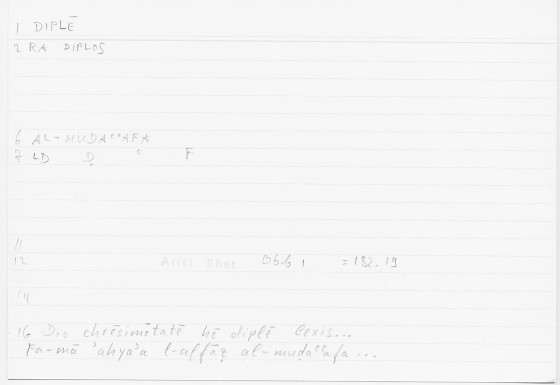 1 DIPLĒ
2 RA DIPLOS
6 AL-MUḌAʿʿAFA
7 LD Ḍ ʿ F
11
12 Arist Rhet 06b 1 =182.19
14
16 Dio chrēsimōtatē hē diplē lexis...
Fa-mā ʾahyaʾa l-alfāẓ al-muḍaʿʿafa...